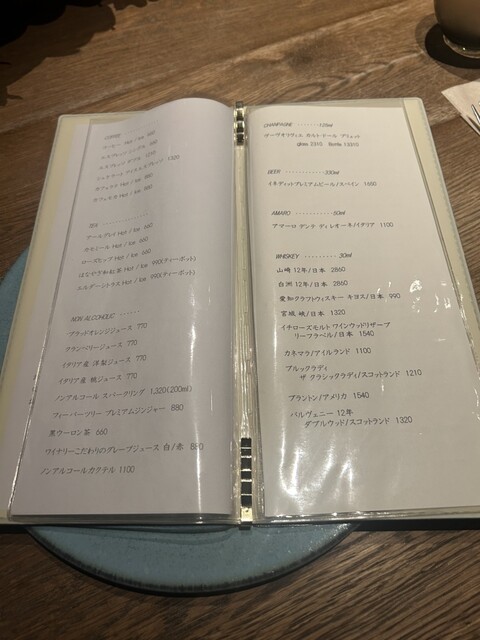 COFFEE
コーヒー Hot / Ice 660
エスプレッソ シングル
エスプレッソ ダブル 1210
シェケラート アイスエスプレッソ 1320
カフェラテ Hot / Ice 880
カプチーノ Hot / Ice 880
TEA
アールグレイ Hot / Ice 660
カモミール Hot / Ice 660
ローズヒップ Hot / Ice 660
はなやぎ和紅茶 Hot / Ice 990(ティーポット)
エルダーシトラス Hot / Ice 990(ティーポット)
NON ALCOHOLIC ······
ブラッドオレンジジュース 770
クランベリージュース 770
イタリア産 洋梨ジュース 770
イタリア産 桃ジュース 770
ノンアルコール スパークリング 1,320(200ml)
フィーバーツリー プレミアムジンジャー 880
黒ウーロン茶 660
ワイナリーこだわりのグレープジュース 白/赤 880
ノンアルコールカクテル 1100
CHAMPAGNE ·······125ml
ポーヴオリヴィエ カルトドール ブリュット
glass 2310 Bottle 13310
BEER ·······330ml
イネディットプレミアムビール/スペイン 1650
AMARO ·······50ml
アマーロ デンテ ディ レオーネ/イタリア 1100
WHISKEY ·······30ml
山崎 12年/日本 2860
白洲 12年/日本 2860
愛知クラフトウィスキー キヨス/日本 990
宮城 峡/日本 1320
イチローズモルト ワインウッドリザーブ
リーフラベル/日本 1540
カネマラ/アイルランド 1100
ブルックラディ
ザ クラシックラディ/スコットランド 1210
ブラントン/アメリカ 1540
バルヴェニー 12年
ダブルウッド/スコットランド 1320